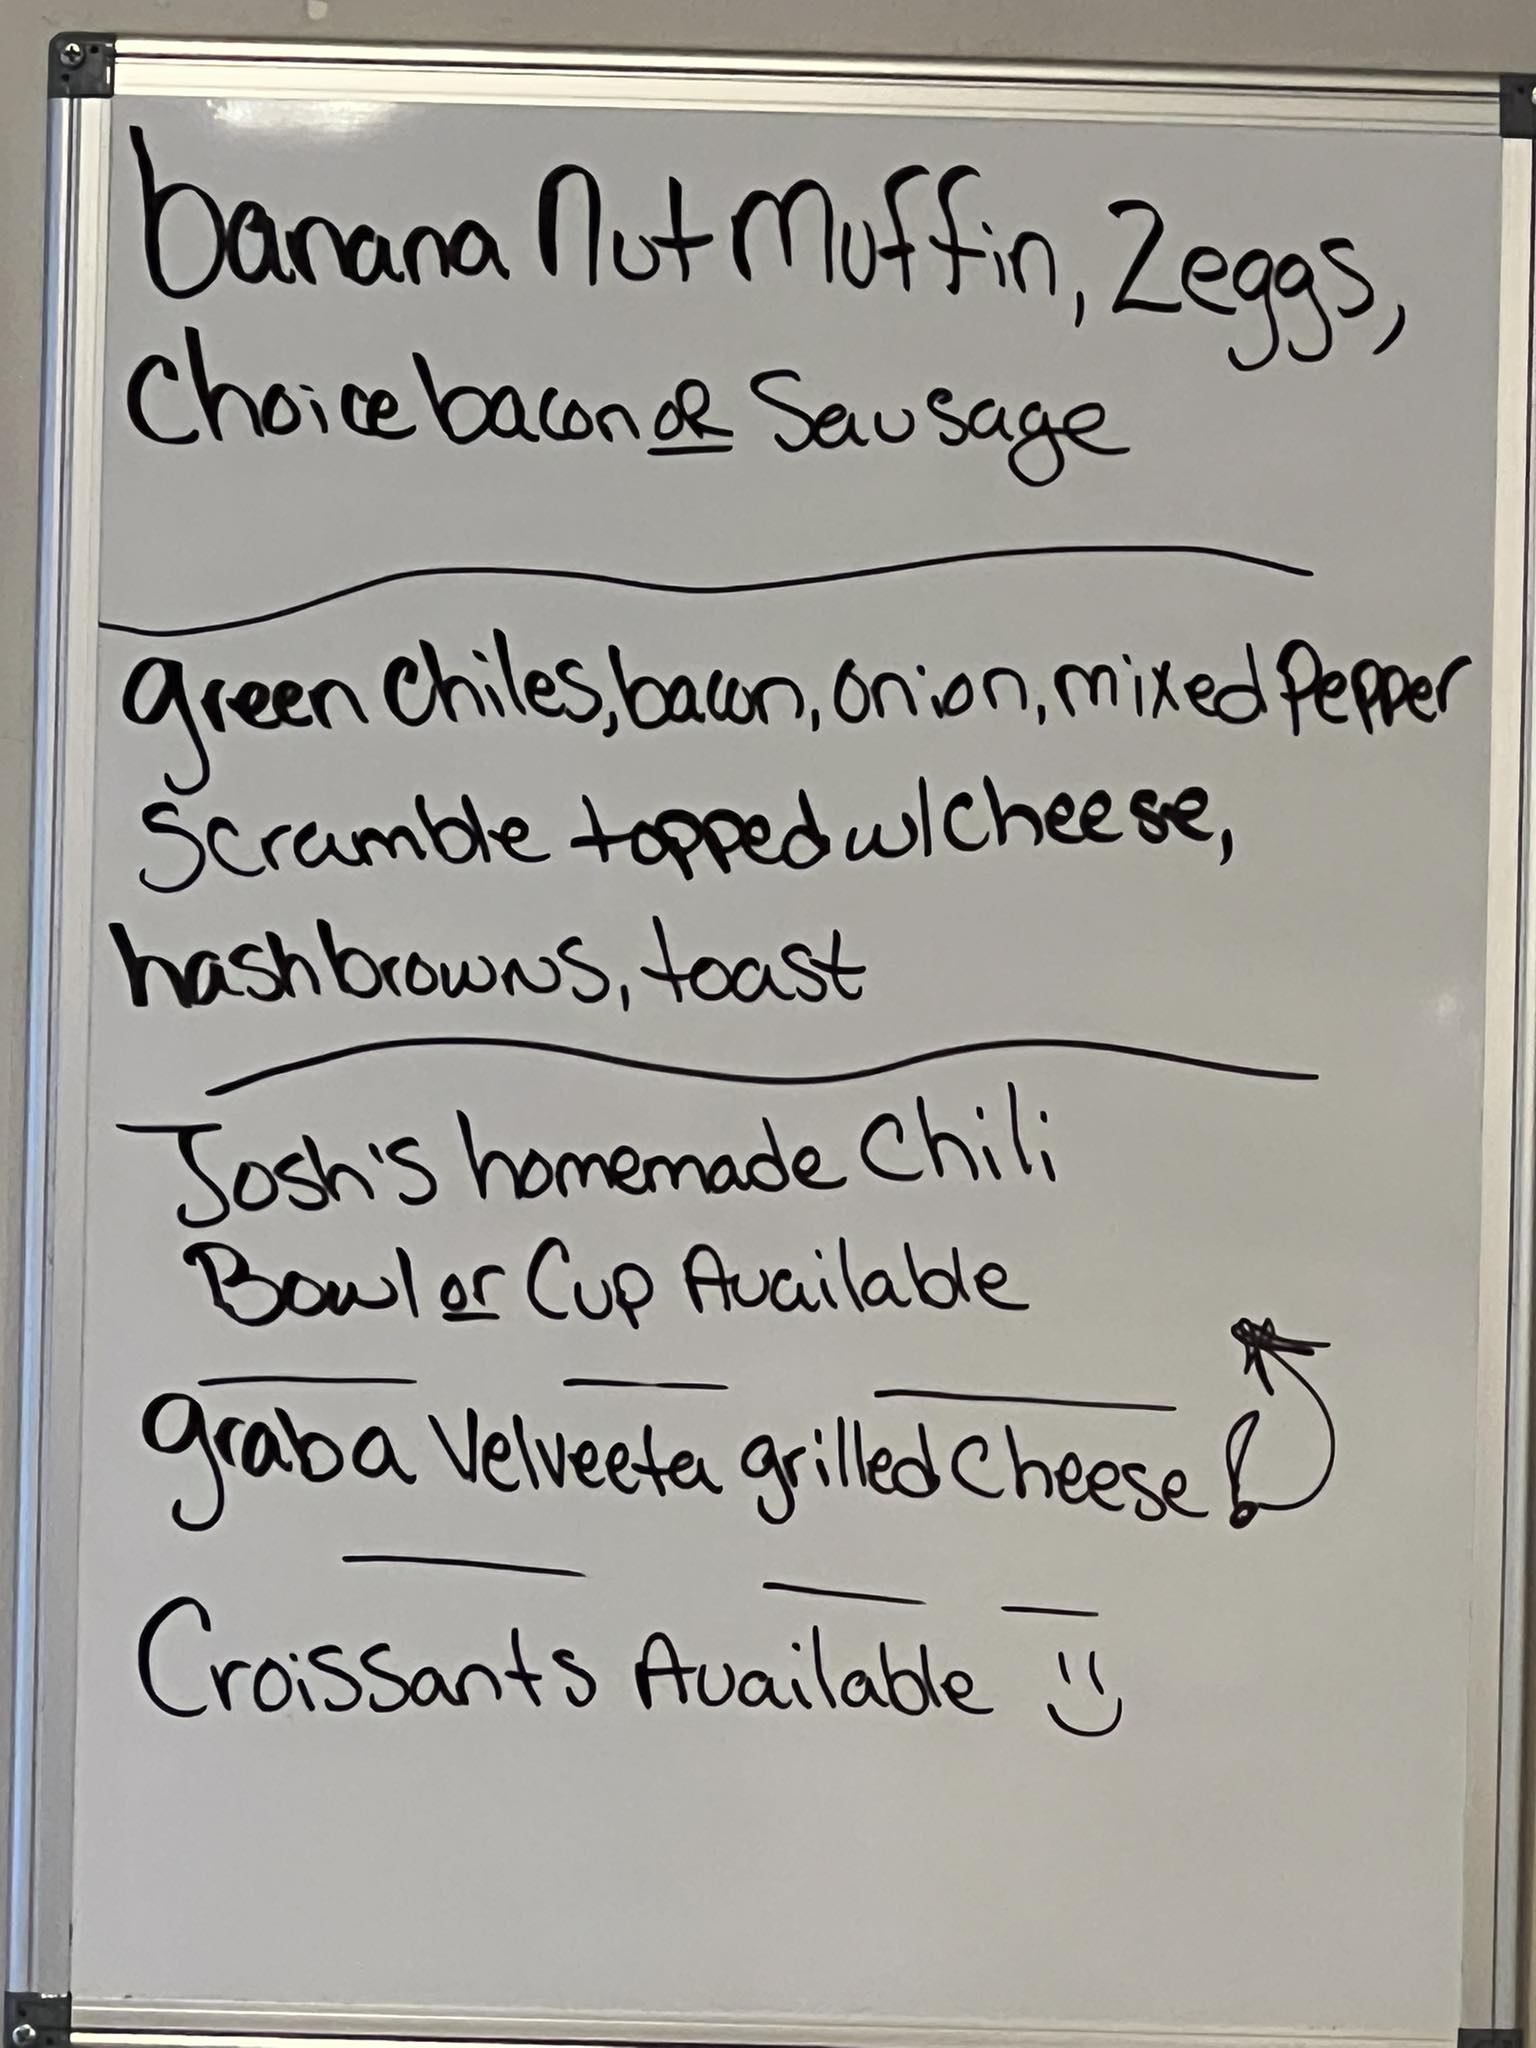 banana Nut Muffin, 2 eggs,
Choice bacon or Sausage
green Chiles, bacon, onion, mixed Pepper
Scramble topped w/ cheese,
hashbrowns, toast
Josh's homemade Chili
Bowl or Cup Available
grab a Velveeta grilled Cheese!
Croissants Available